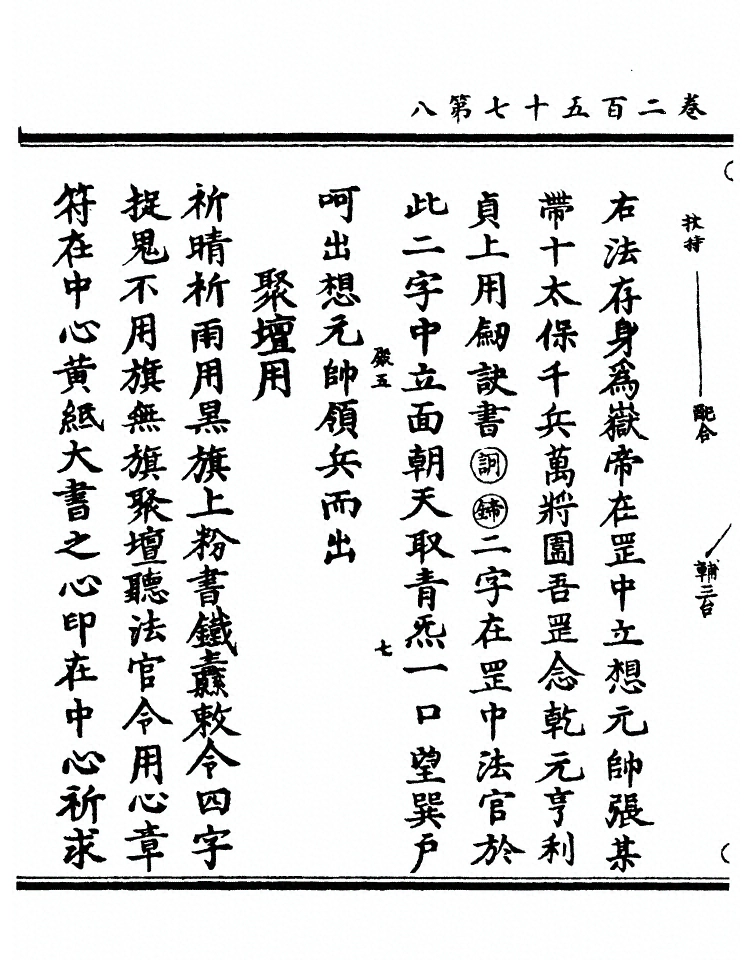 卷二百五十七第八
扶持
配合
輔三台
右法存身為嶽帝在罡中立想元帥張某
帶十太保千兵萬將圍吾罡念乾元亨利
貞上用劒訣書㊀二字在罡中法官於
此二字中立面朝天取青炁一口望巽戶
殿五
七
呵出想元帥領兵而出
聚壇用
祈晴祈雨用黑旗上粉書鐵纛敕令四字
捉鬼不用旗無旗聚壇聽法官令用心章
符在中心黃紙大書之心印在中心祈求